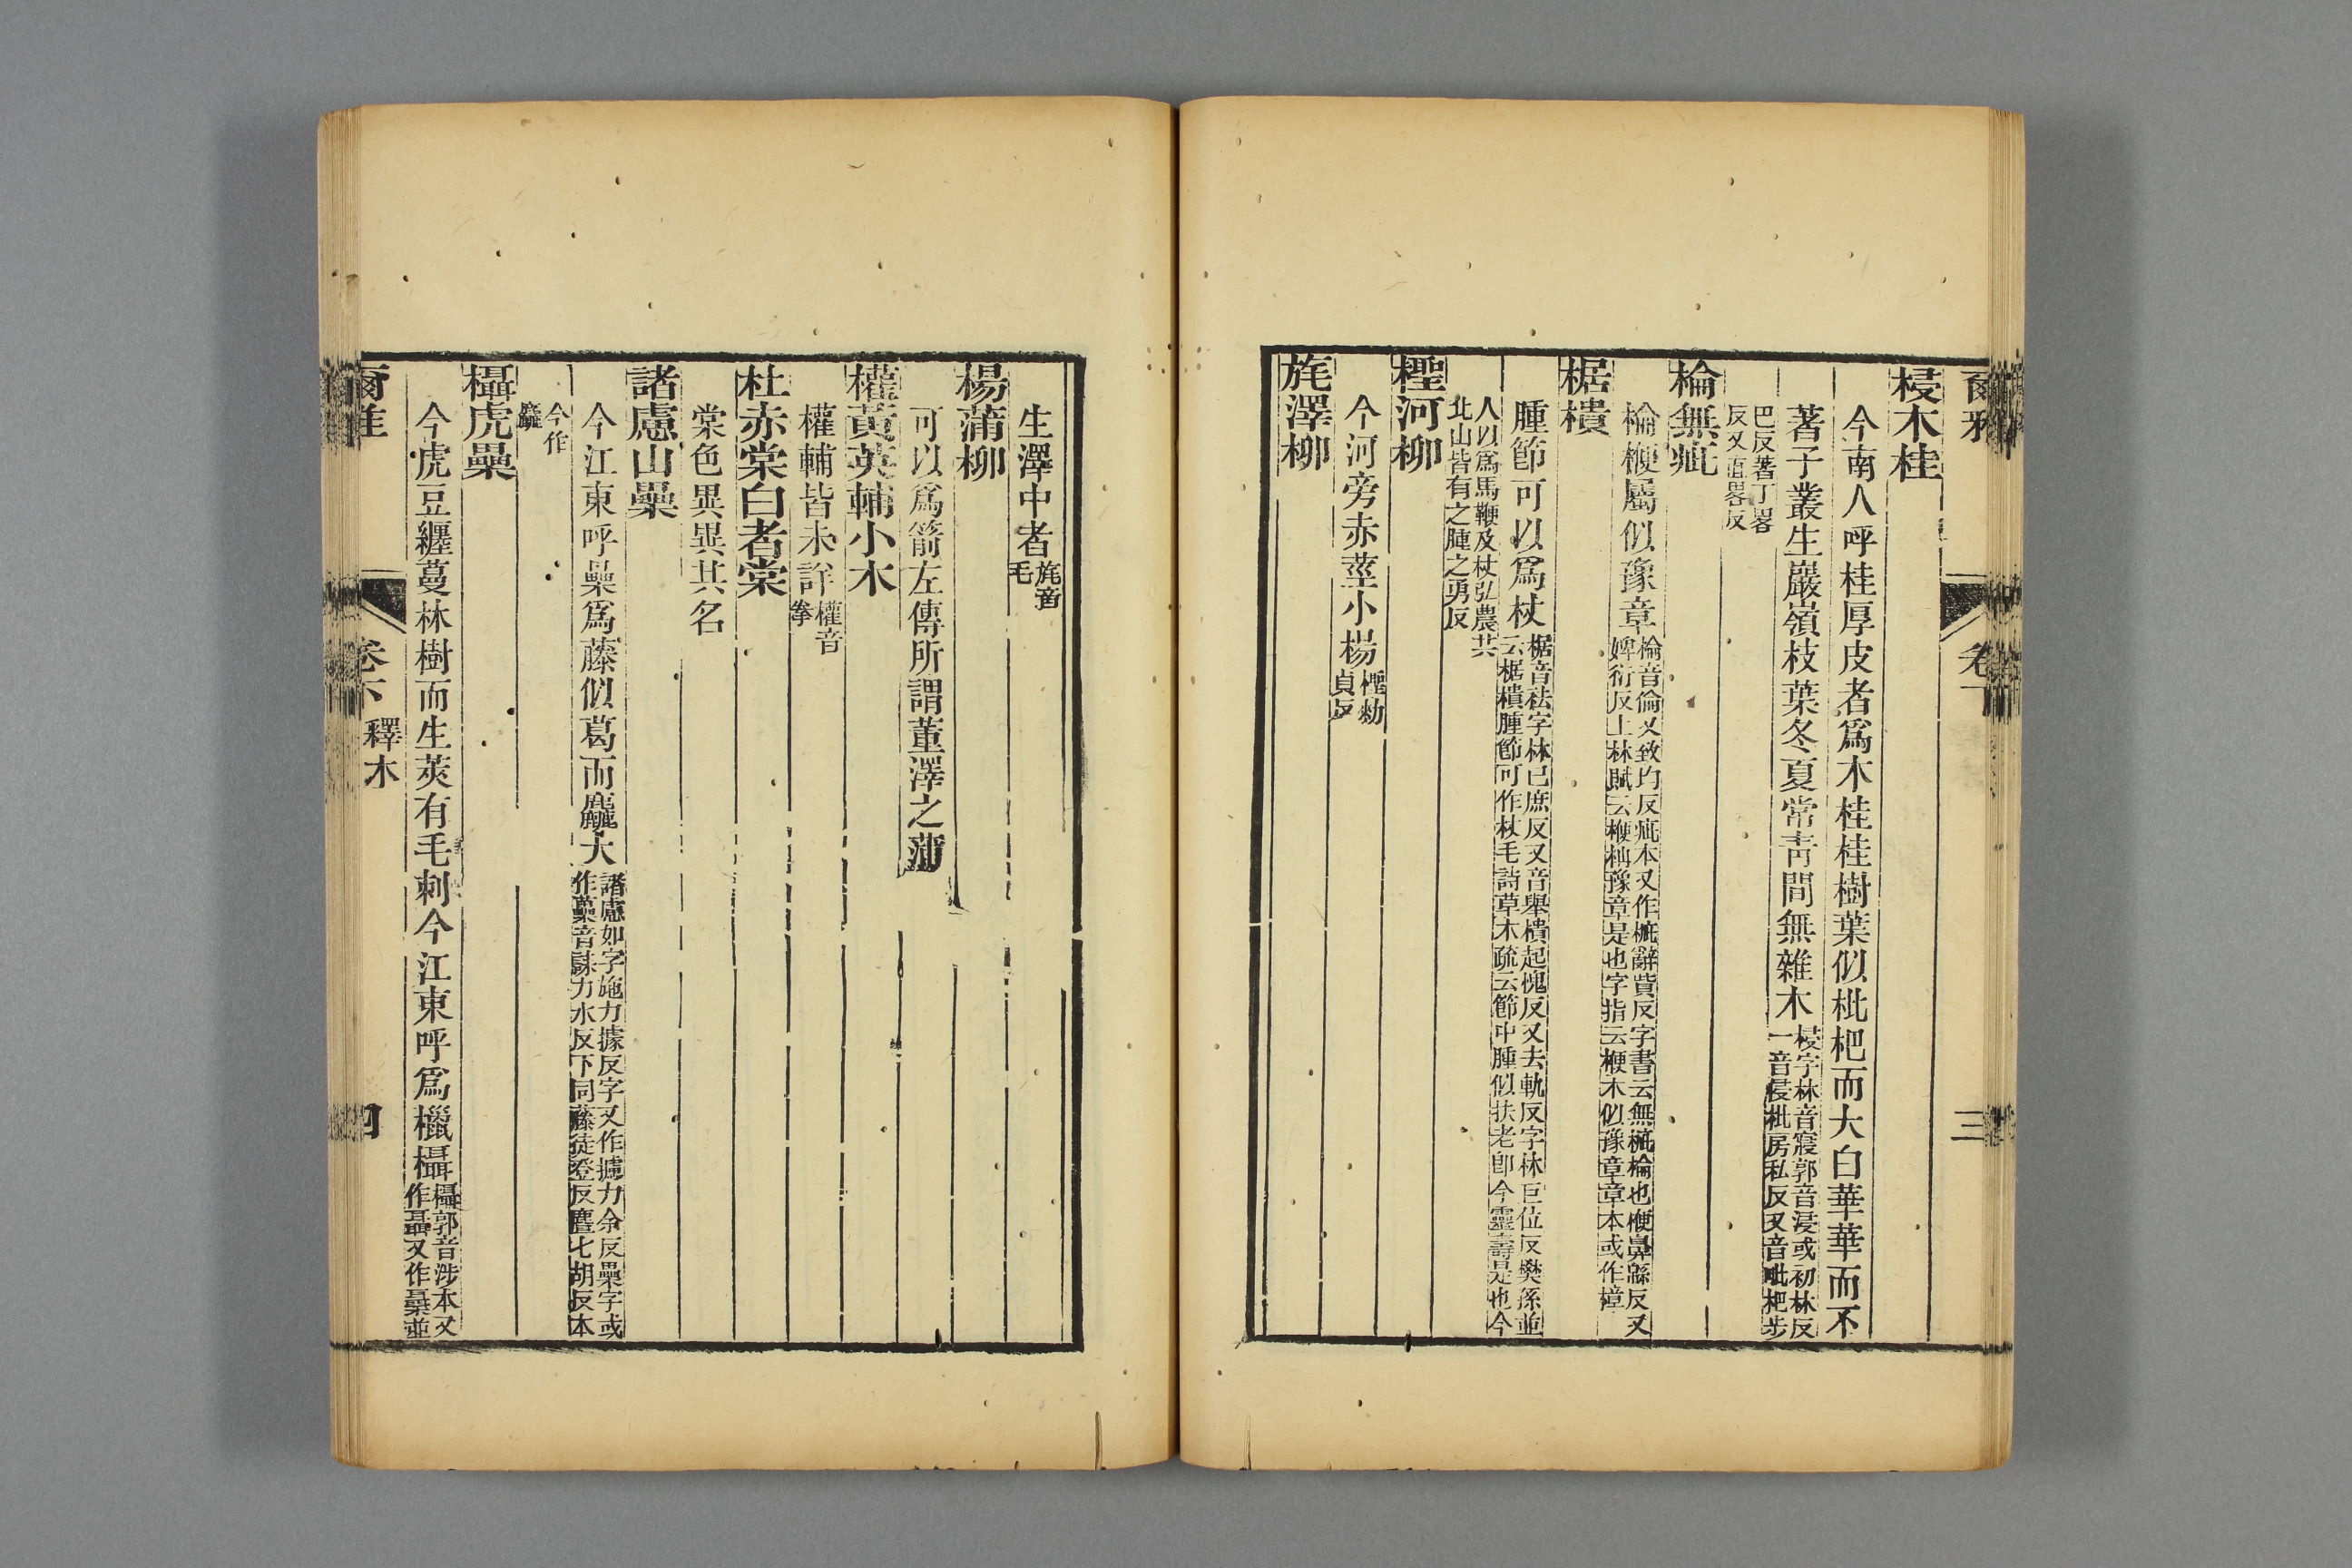 爾雅 卷下 三
梫木桂
今南人呼桂厚皮者爲木桂桂樹葉似枇杷而大白華華而不
著子叢生巖嶺枝葉冬夏常靑間無雜木梫字林音寢郭音浸或初林反
一音侵枇房私反又音毗杷步
巴反著丁畧
反又直畧反
棆無疵
棆楩屬似豫章棆音倫又致均反疵本又作㭰辭貲反字書云無㭰棆也楩鼻緜反又
婢衍反上林賦云楩柟豫章是也字指云楩木似豫章章本或作樟
椐樻
腫節可以爲杖椐音袪字林已庶反又音舉樻起愧反又去軌反字林巨位反樊孫並
云椐樻腫節可作杖毛詩草木疏云節中腫似扶老卽今靈壽是也今
人以爲馬鞭及杖弘農共
北山皆有之腫之勇反
檉河柳
今河旁赤莖小楊檉勑
貞反
旄澤柳
生澤中者旄音
毛
楊蒲柳
可以爲箭左傳所謂董澤之蒲
權黃英輔小木
權輔皆未詳權音
拳
杜赤棠白者棠
棠色異異其名
諸慮山櫐
今江東呼櫐爲藤似葛而麤大諸慮如字施力據反字又作攄力余反櫐字或
作虆音誄力水反下同藤徒登反麤七胡反本
今作
麤
欇虎櫐
今虎豆纒蔓林樹而生莢有毛刺今江東呼爲㯿欇欇郭音涉本又
作聶又作櫐並
爾雅 卷下 釋木 四